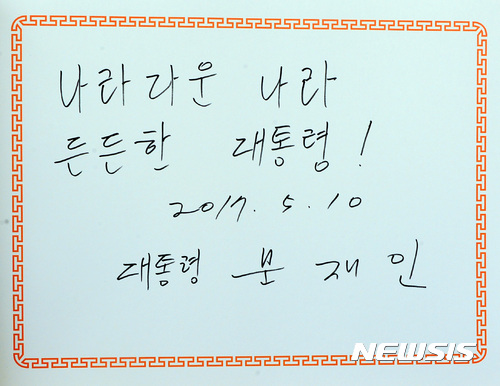 나라다운 나라
든든한 대통령!
2017. 5. 10
대통령 문 재 인
NEWSIS